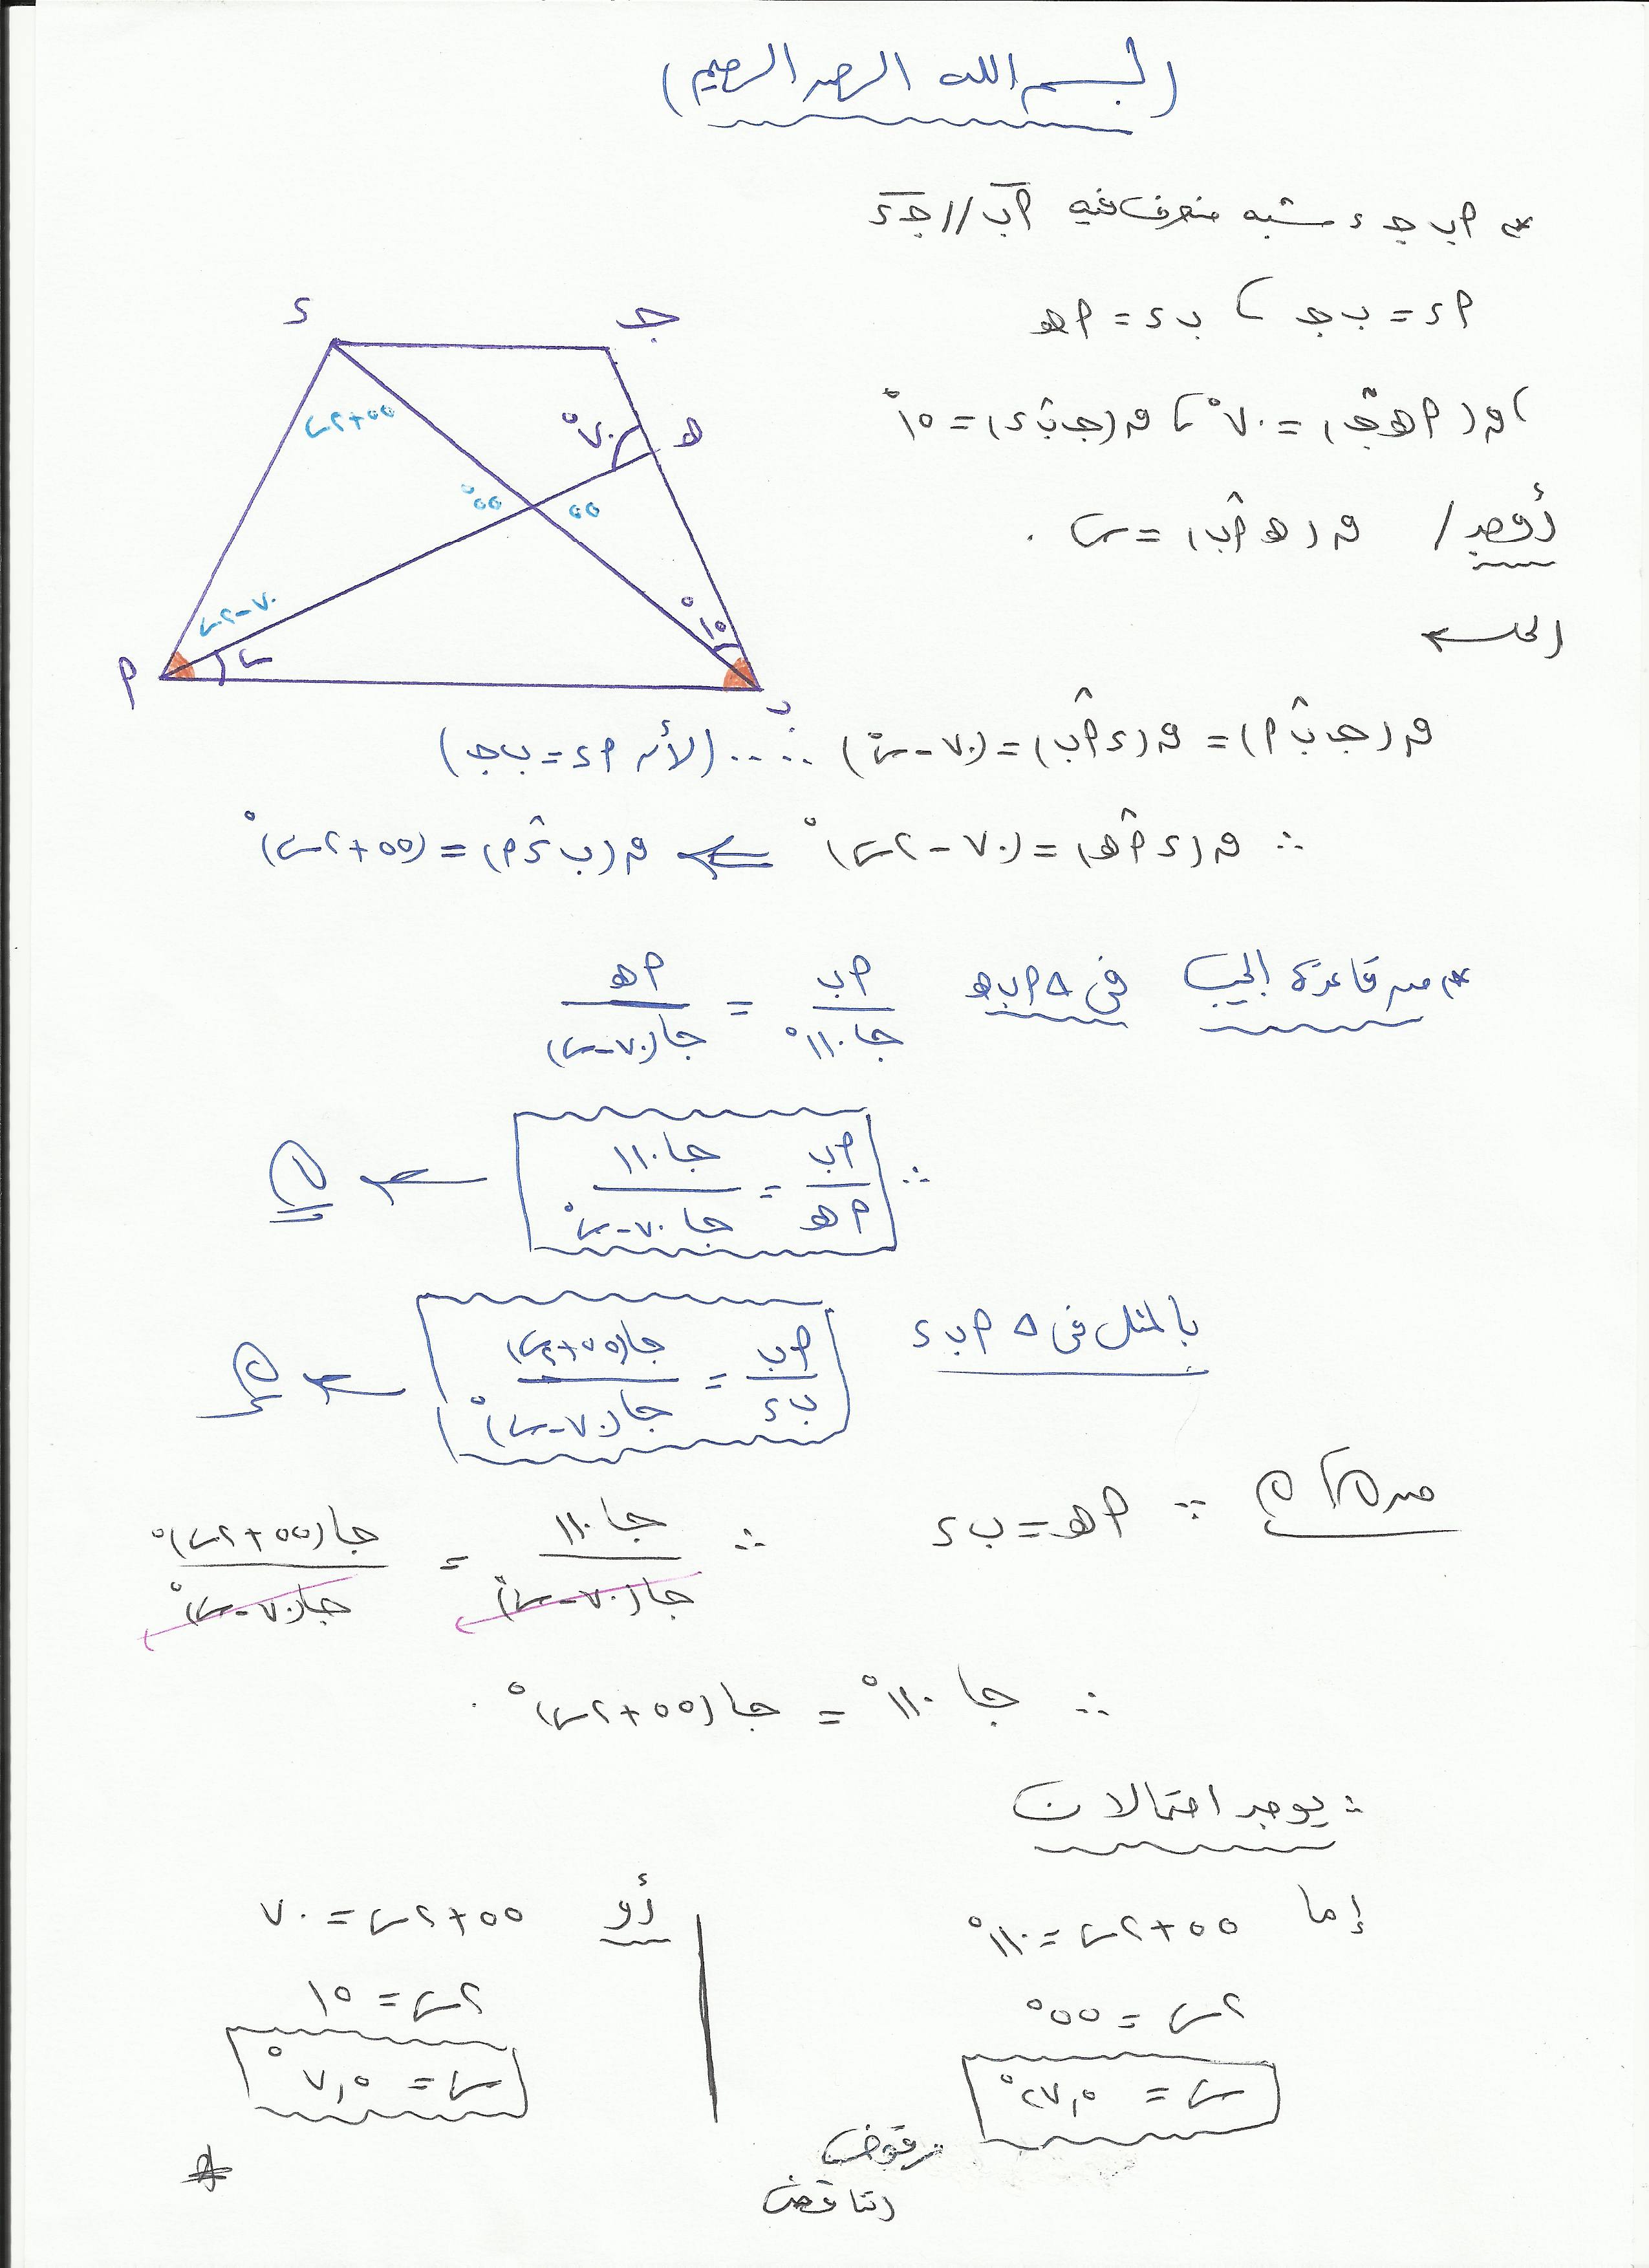 (بسم الله الرحمن الرحيم)
* أ ب جـ د شبه منحرف فيه أب // جـد
أد = ب جـ ، ب د = أهـ
، ق(أهـ جـ) = ٧٠° ، ق(جـ ب د) = ١٥°
أوجد / ق(هـ أ ب) = س .
الحل
د
جـ
هـ
٧٠°
٥٥+٢س
٥٥°
٥٥
٧٠-٢س
س
١٥°
أ
ب
ق(جـ ب أ) = ق(د أ ب) = (٧٠-س)° .... (لأن أد = ب جـ)
∴ ق(د أ هـ) = (٧٠-٢س)° ⇐ ق(ب د أ) = (٥٥+٢س)°
* من قاعدة الجيب في Δ أ ب هـ أب / جا ١١٠° = أهـ / جا(٧٠-س)
∴ أب / أهـ = جا ١١٠ / جا ٧٠-س° ← ١
بالمثل في Δ أ ب د أب / ب د = جا(٥٥+٢س) / جا(٧٠-س)° ← ٢
من ١ ، ٢ ∵ أهـ = ب د ∴ جا ١١٠ / جا(٧٠-س)° = جا(٥٥+٢س)° / جا(٧٠-س)°
∴ جا ١١٠° = جا(٥٥+٢س)° .
∴ يوجد احتمالان
إما ٥٥+٢س = ١١٠° أو ٥٥+٢س = ٧٠
٢س = ٥٥° ٢س = ١٥
س = ٢٧,٥° س = ٧,٥°
مرفوض
تناقض
#